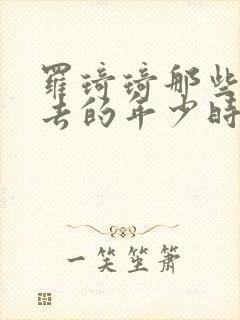 羅琦琦那些
去的年少時
一笑笙簫